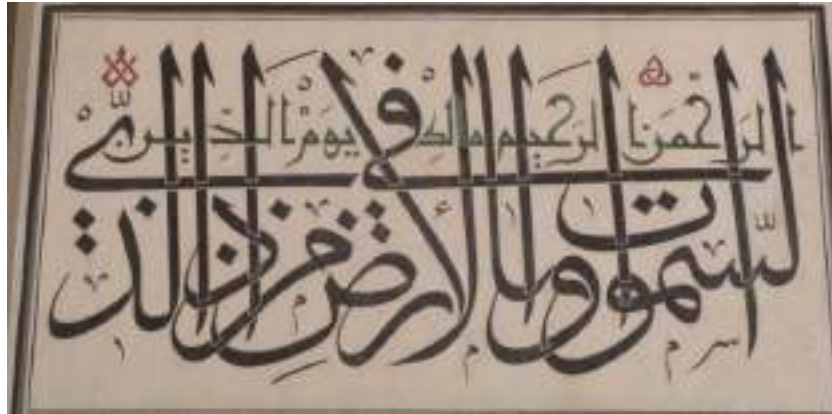 الرَّحْمٰنِ الرَّحِيمِ مَالِكِ يَوْمِ الدِّينِ
السَّمٰوَاتِ وَمَا فِي الْأَرْضِ مَنْ ذَا الَّذِي